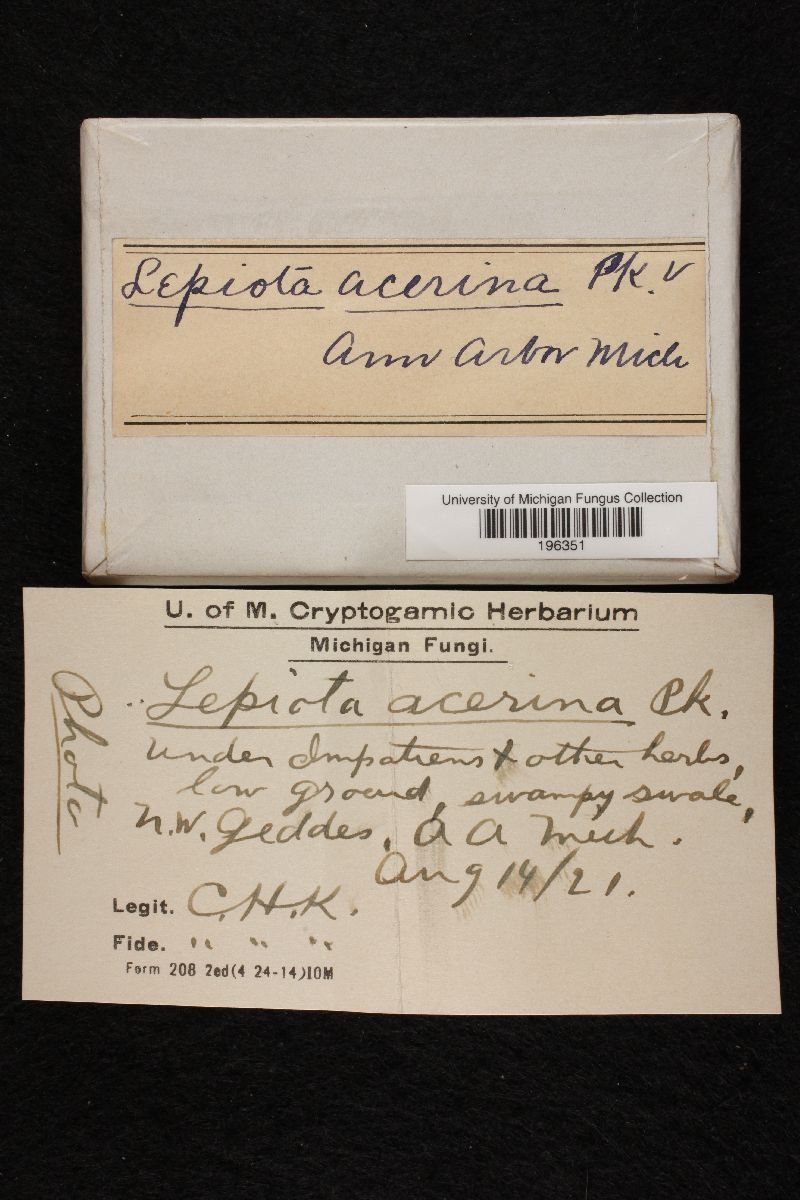 Lepiota acerina Pk. v
Ann Arbor Mich
University of Michigan Fungus Collection
196351
U. of M. Cryptogamic Herbarium
Michigan Fungi.
Photo
Lepiota acerina Pk.
under Impatiens & other herbs,
low ground, swampy swale,
N.W. Geddes, A A Mich.
Aug 14/21.
Legit. C.H.K.
Fide. " " "
Form 208 2ed(4 24-14)10M